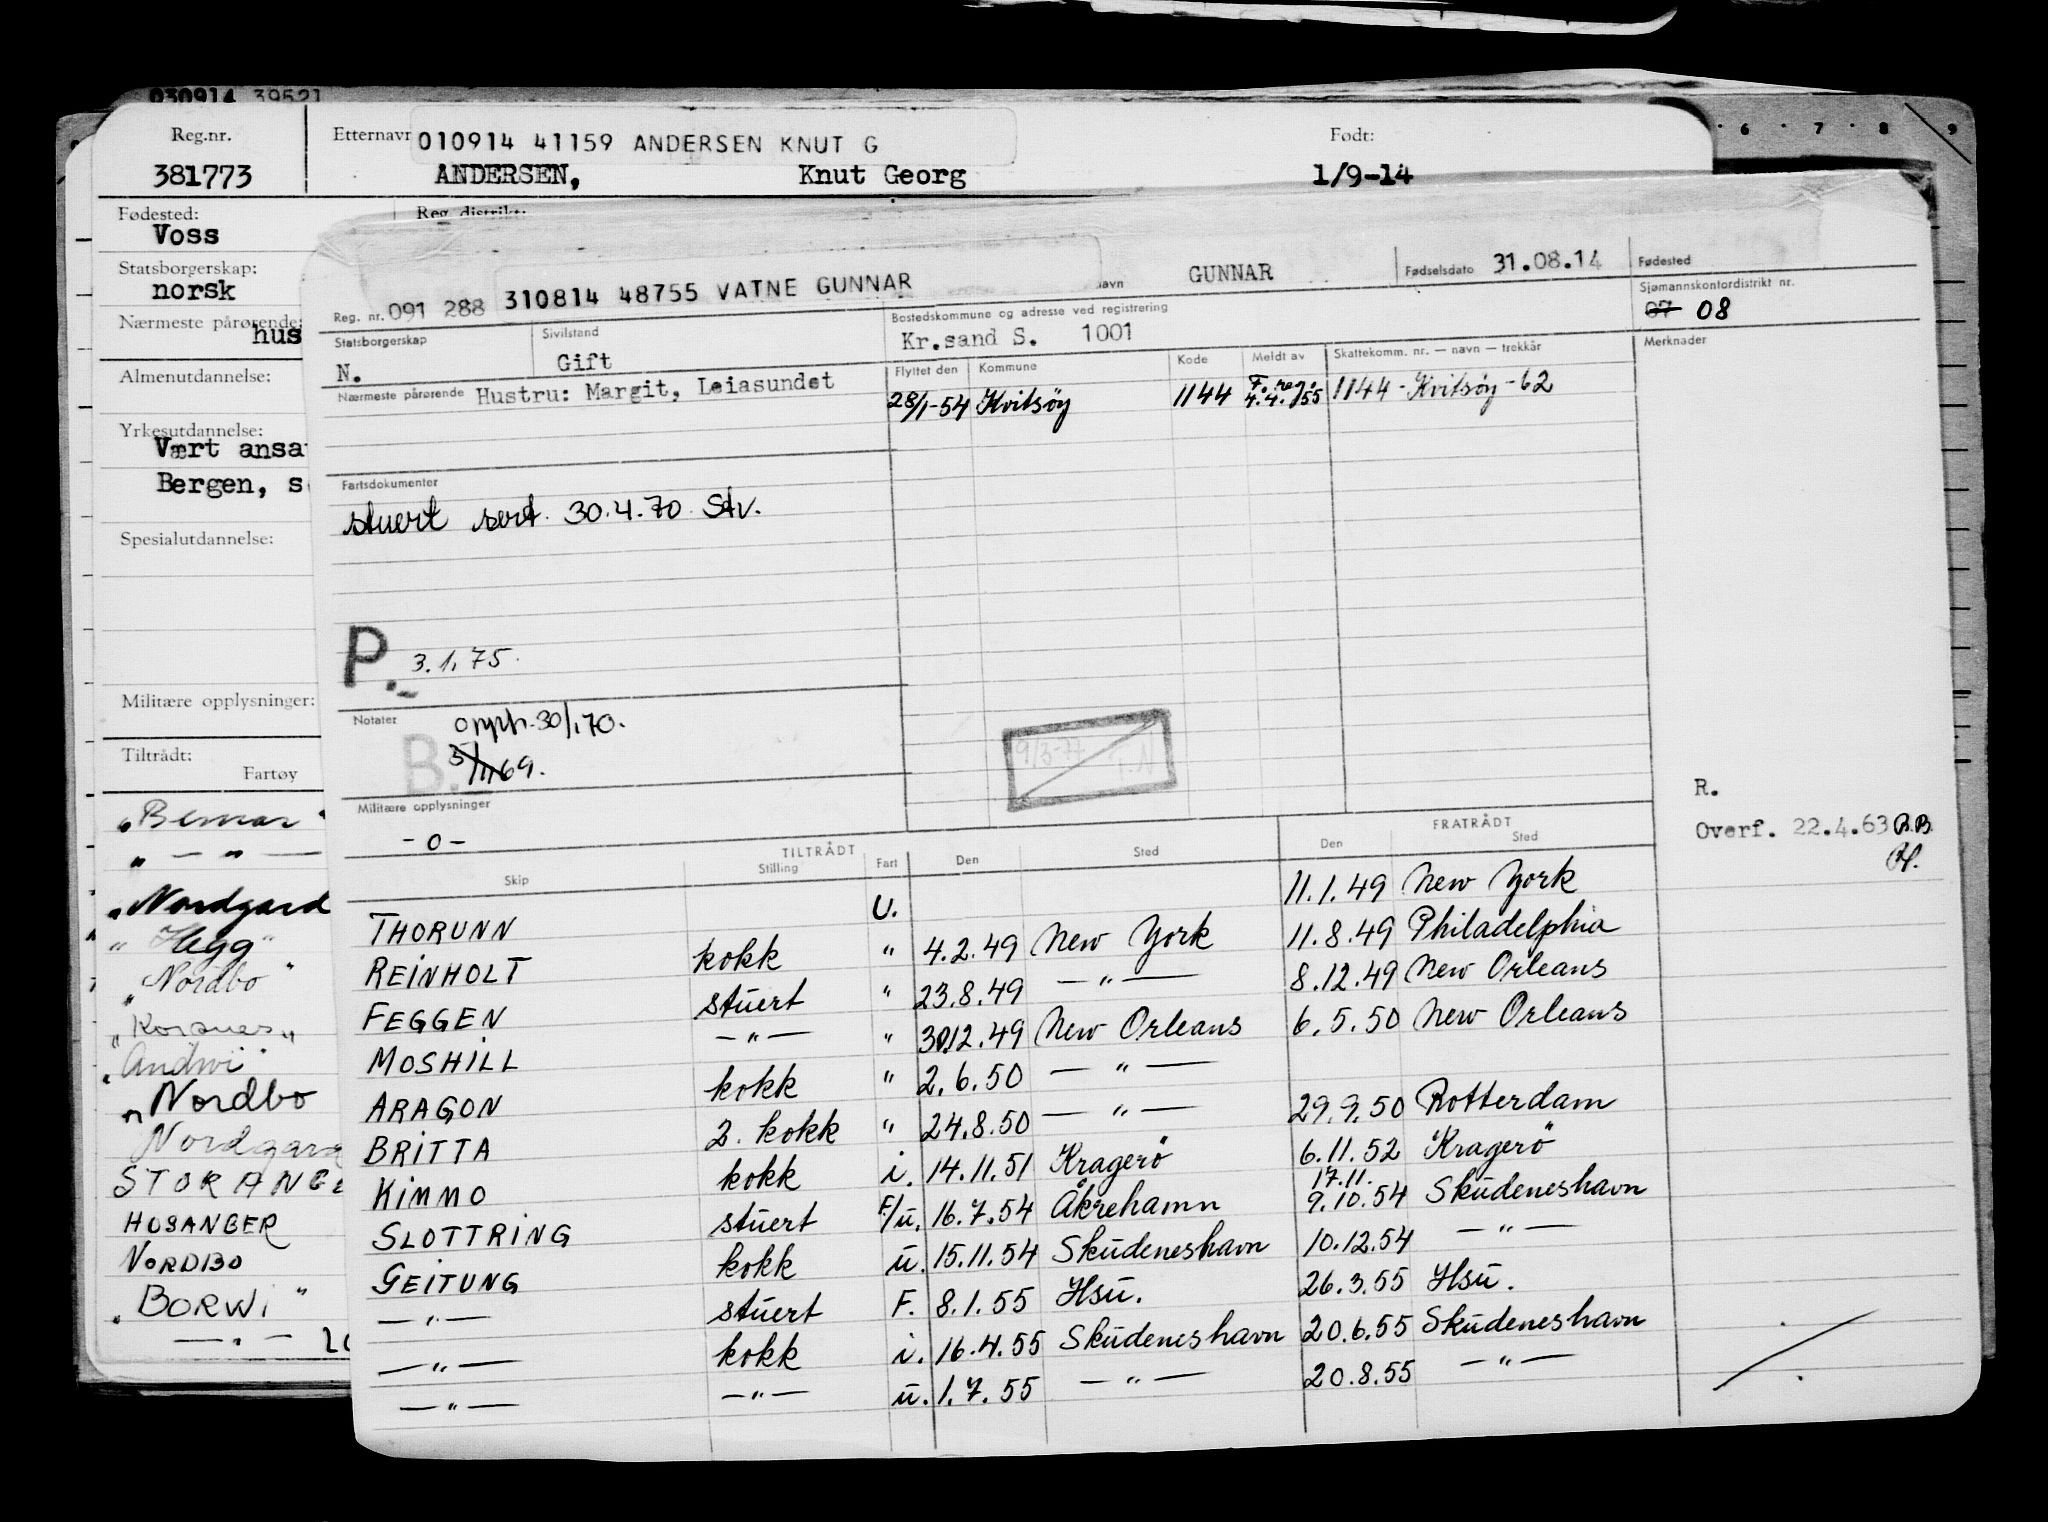 030914 39521
Reg.nr. Etternavn 010914 41159 ANDERSEN KNUT G Født:
381773 ANDERSEN, Knut Georg 1/9-14
Fødested: Reg. distrikt:
Voss
Statsborgerskap:
norsk
Nærmeste pårørende:
hus
Almenutdannelse:
Yrkesutdannelse:
Vært ansa
Bergen, s
Spesialutdannelse:
Militære opplysninger:
Tiltrådt:
Fartøy
"Bemar"
" — " —
"Nordgard
"Hegg"
"Nordbo"
"Korsnes"
"Andwi"
"Nordbo
Nordgard
STORANGE
HOSANGER
NORDBO
"BORWI"
— " —
6 7 8 9
Reg. nr. 091 288 310814 48755 VATNE GUNNAR navn GUNNAR Fødselsdato 31.08.14 Fødested
Statsborgerskap N. Sivilstand Gift Bostedskommune og adresse ved registrering Kr.sand S. 1001 Sjømannskontordistrikt nr. 07 08
Nærmeste pårørende Hustru: Margit, Leiasundet
Flyttet den Kommune Kode Meldt av Skattekomm. nr. — navn — trekkår Merknader
28/1-54 Kvitsøy 1144 F. reg. 4.4./55 1144 - Kvitsøy - 62
Fartsdokumenter
stuert sert. 30.4.70 Stv.
P. 3.1.75.
Notater opph. 30/1 70.
B. 5/11 69.
9/3-77 T.N
Militære opplysninger
- 0 -
R.
Overf. 22.4.63 B.B.
TILTRÅDT FRATRÅDT
Skip Stilling Fart Den Sted Den Sted
THORUNN U. 11.1.49 New York
REINHOLT kokk " 4.2.49 New York 11.8.49 Philadelphia
FEGGEN stuert " 23.8.49 — " — 8.12.49 New Orleans
MOSHILL — " — " 30.12.49 New Orleans 6.5.50 New Orleans
ARAGON kokk " 2.6.50 — " —
BRITTA 2. kokk " 24.8.50 — " — 29.9.50 Rotterdam
KIMMO kokk i. 14.11.51 Kragerö 6.11.52 Kragerö
SLOTTRING stuert F/u. 16.7.54 Åkrehamn 17.11. 9.10.54 Skudeneshavn
GEITUNG kokk u. 15.11.54 Skudeneshavn 10.12.54 — " —
— " — stuert F. 8.1.55 Hsu. 26.3.55 Hsu.
— " — kokk i. 16.4.55 Skudeneshavn 20.6.55 Skudeneshavn
— " — — " — u. 1.7.55 — " — 20.8.55 — " —